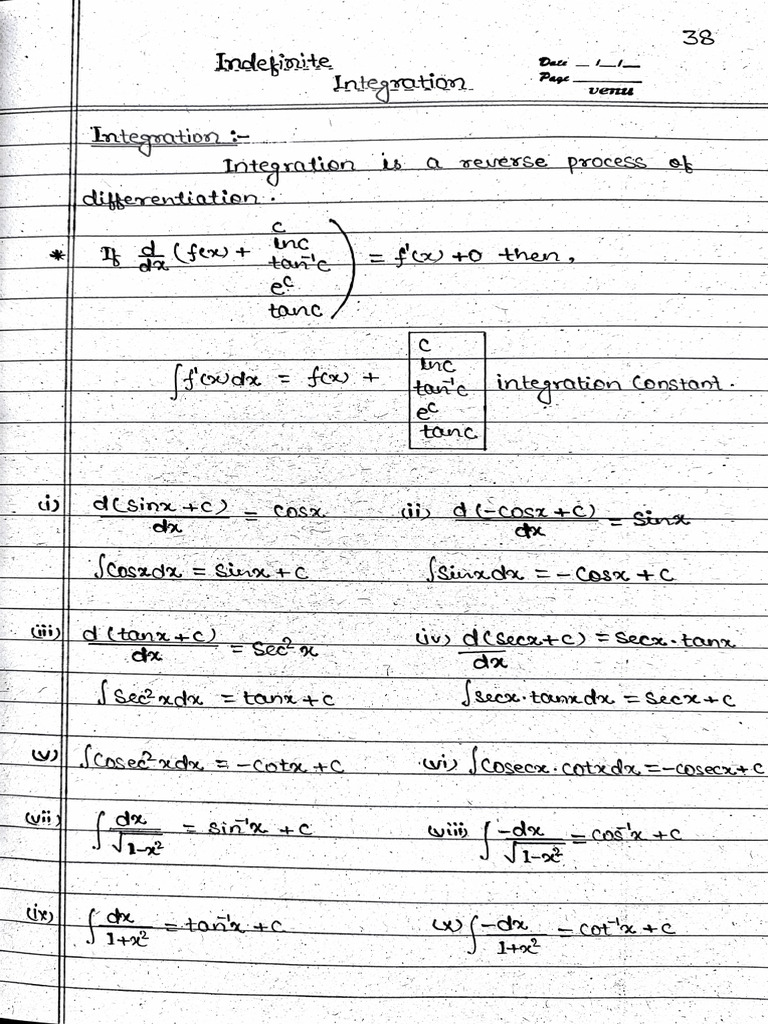 38
Indefinite
Integration
Date _/_/_
Page ______
venu
Integration :-
Integration is a reverse process of
differentiation.
* If d/dx (f(x) + c
lnc
tan⁻¹c
eᶜ
tanc) = f'(x) + 0 then,
∫f'(x)dx = f(x) + c
lnc
tan⁻¹c
eᶜ
tanc integration constant.
(i) d(sinx + c)/dx = cosx (ii) d(-cosx + c)/dx = sinx
∫cosxdx = sinx + c ∫sinxdx = -cosx + c
(iii) d(tanx + c)/dx = sec²x (iv) d(secx + c)/dx = secx·tanx
∫sec²xdx = tanx + c ∫secx·tanxdx = secx + c
(v) ∫cosec²xdx = -cotx + c (vi) ∫cosecx·cotxdx = -cosecx + c
(vii) ∫dx/√1-x² = sin⁻¹x + c (viii) ∫-dx/√1-x² = cos⁻¹x + c
(ix) ∫dx/1+x² = tan⁻¹x + c (x) ∫-dx/1+x² = cot⁻¹x + c